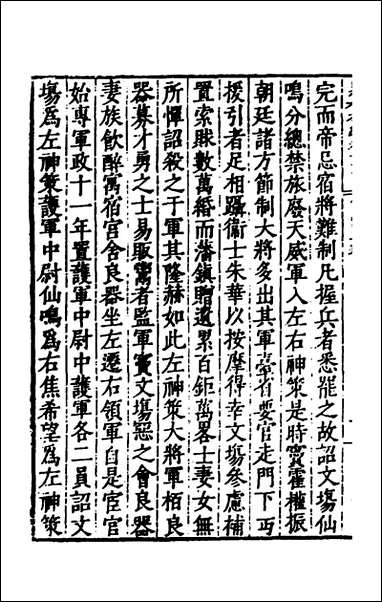 完而帝忌宿將難制凡握兵者悉罷之故詔文塲仙
鳴分總禁旅廢天威軍入左右神策是時竇霍權振
朝廷諸方節制大將多出其軍臺省要官走門下丐
援引者足相躡衞士朱華以按摩得幸文塲參慮補
置索賕數萬緡而藩鎮贈遺累百鉅萬畧士妻女無
所憚詔殺之于軍其隆赫如此左神策大將軍栢良
器募才勇之士易販鬻者監軍竇文塲惡之會良器
妻族飲醉寓宿宫舍良器坐左遷右領軍自是宦官
始專軍政十一年置護軍中尉中護軍各二員詔文
塲爲左神策護軍中尉仙鳴爲右焦希望爲左神策